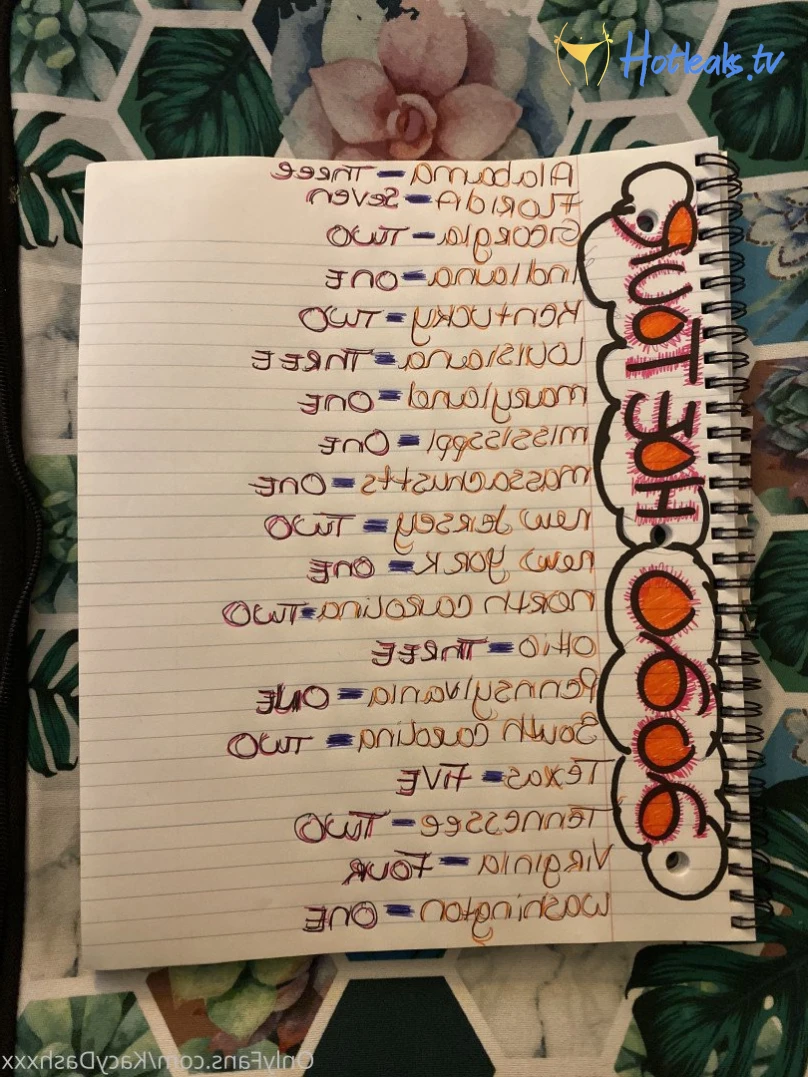 Hotleaks.tv
HOE TOUR
Alabama - THREE
FLORIDA - SEVEN
Georgia - TWO
Indiana - ONE
Kentucky - TWO
Louisiana - THREE
maryland - ONE
mississppi - ONE
massachustts - ONE
new Jersey - TWO
new YORK - ONE
NORTH Carolina - TWO
OHIO - THREE
Pennsylvania - ONE
South Carolina - TWO
Texas - FIVE
Tennessee - TWO
Virginia - FOUR
washington - ONE
OnlyFans.com/KacyDashxxx